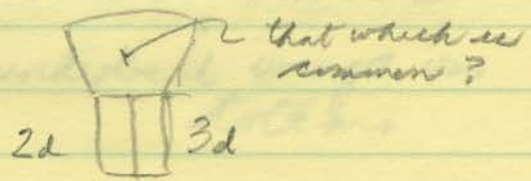 that which is
common?
2d 3d